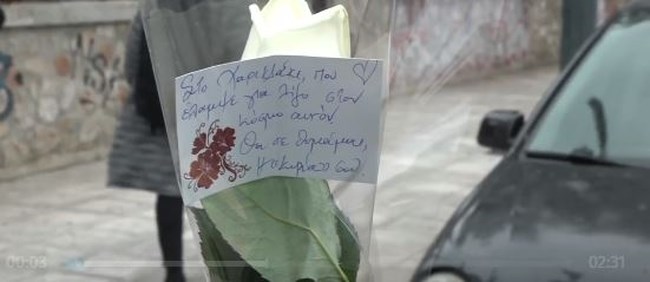 Στο Χαρικλάκι, που
έλαμψε για λίγο στον
κόσμο αυτόν
Θα σε θυμάμαι,
Η κυρία σου.
00:03
02:31